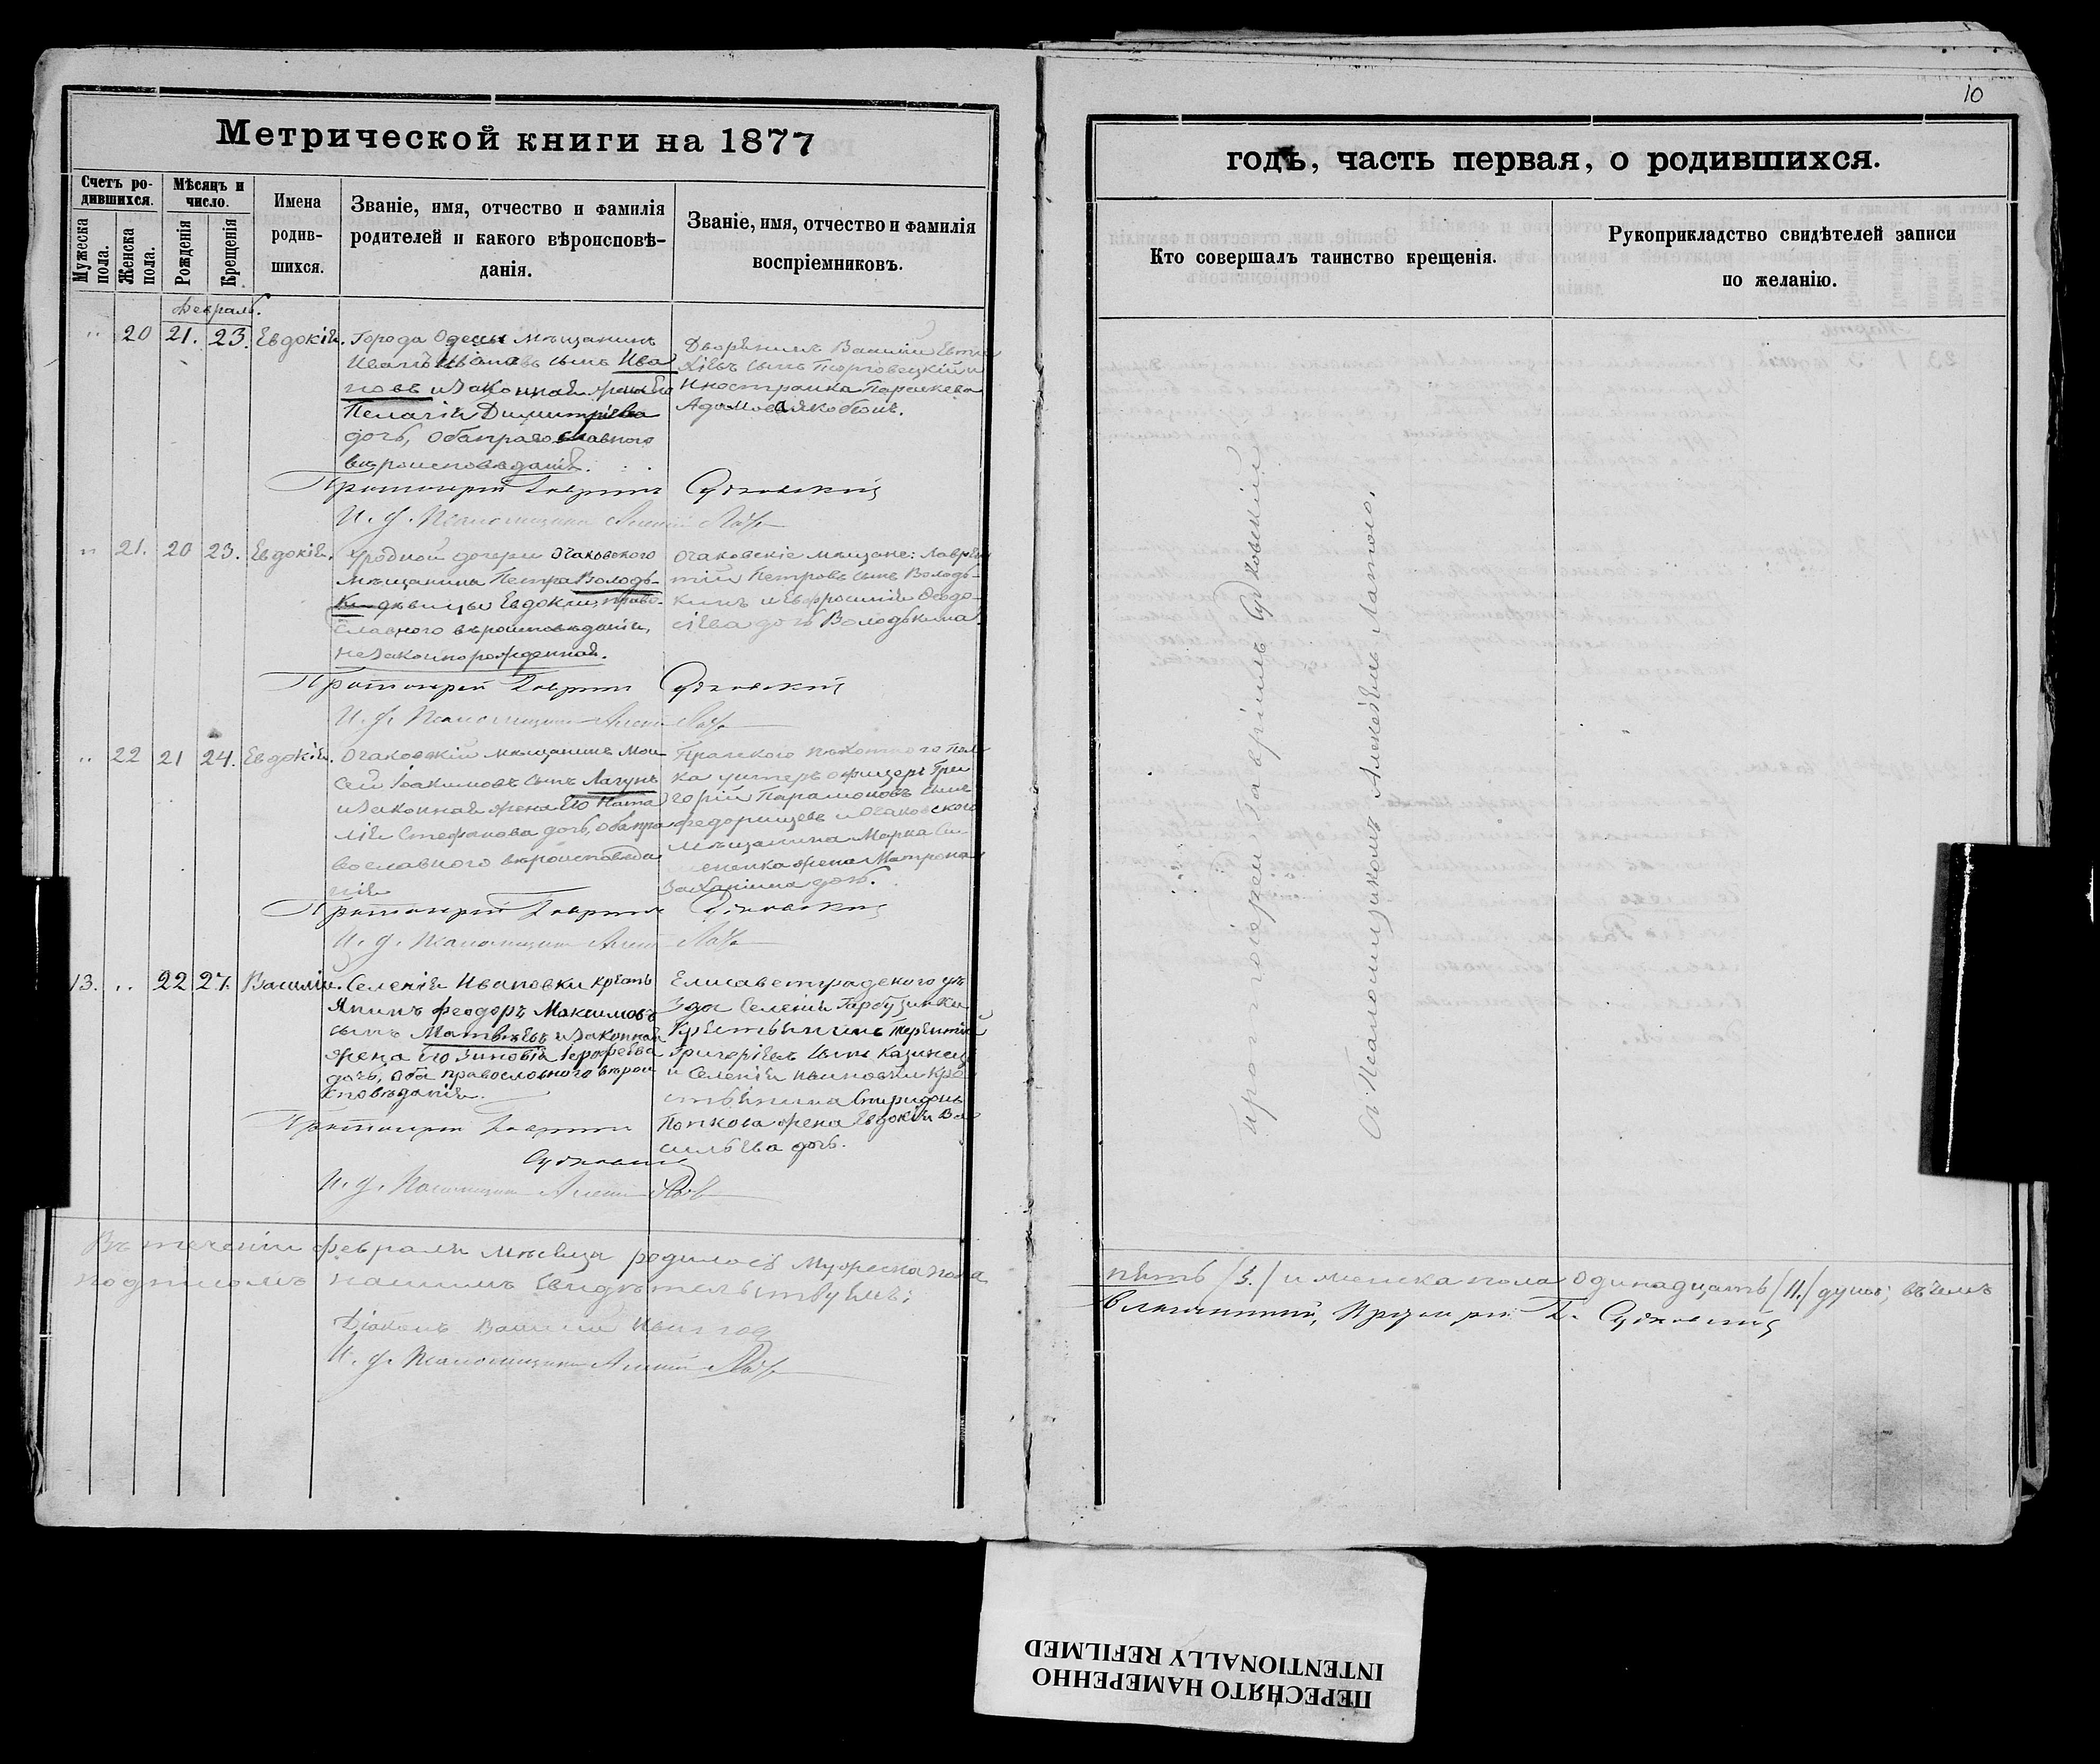 10
Метрической книги на 1877
годъ, часть первая, о родившихся.
Счетъ ро-
дившихся.
Мѣсяцъ и
число.
Мужеска
пола.
Женска
пола.
Рожденія
Крещенія
Имена
родив-
шихся.
Званіе, имя, отчество и фамилія
родителей и какого вѣроисповѣ-
данія.
Званіе, имя, отчество и фамилія
воспріемниковъ.
Кто совершалъ таинство крещенія.
Рукоприкладство свидѣтелей записи
по желанію.
Февраль.
" 20 21. 23. Евдокія.
Города Одессы мѣщанинъ
Иванъ Ивановъ сынъ Ива
новъ и законная жена его
Пелагія Димитріева
дочь, оба православнаго
вѣроисповѣданія.
Дворянинъ Василій Евти
хіевъ сынъ
Иностранка Параскева
Протоіерей Гавріилъ Судковскій
И. д. Псаломщика Алексій
" 21. 20 23. Евдокія.
Уродной дочери Очаковского
мѣщанина Петра Володь-
ки дѣвицы Евдокіи, право-
славного вѣроисповѣданія,
незаконнорожденная.
Очаковскіе мѣщане: Лаврен
тій Петровъ сынъ Володь-
кинъ и Евфросинія Феодо-
сіева дочь Володькина
Протоіерей Гавріилъ Судковскій
И. д. Псаломщика Алексій
" 22 21 24. Евдокія.
Очаковскій мѣщанинъ Мои
сей Іоакимовъ сынъ Лагунъ
и законная жена его Ната
лія Стефанова дочь, оба пра
вославного вѣроисповѣда
нія
Пражского пѣхотного пол
ка унтеръ офицеръ Гри
горій Парамоновъ сынъ
Федорищевъ и Очаковского
мѣщанина Марка Си-
ненка жена Матрона
Захаріина дочь.
Протоіерей Гавріилъ Судковскій
И. д. Псаломщика Алексій
13. " 22 27. Василій.
Селенія Ивановки кресть
янинъ Феодоръ Максимовъ
сынъ Матвѣевъ и законная
жена его Зиновія Іерофеева
дочь, оба православного вѣрои
сповѣданія.
Елисаветградского уѣ
зда Селенія Гарбузинки
Крестьянинъ Терентій
Григоріевъ сынъ
и Селенія Ивановки кре
стьянина Спиридона
Попкова жена Евдокія Ва
сильева дочь.
Протоіерей Гавріилъ
Судковскій
И. д. Псаломщика Алексій
Протоіерей Гавріилъ Судковскій
Съ Псаломщикомъ Алексѣемъ
Въ теченіи февраля мѣсяца родилось мужеска пола
пять /5./ и женска пола одинадцать /11./ душъ; въ чемъ
подписомъ нашимъ свидѣтельствуемъ:
Г. Судковскій
Діаконъ Василій
И. д. Псаломщика Алексій
ПЕРЕСНЯТО НАМЕРЕННО
INTENTIONALLY REFILMED